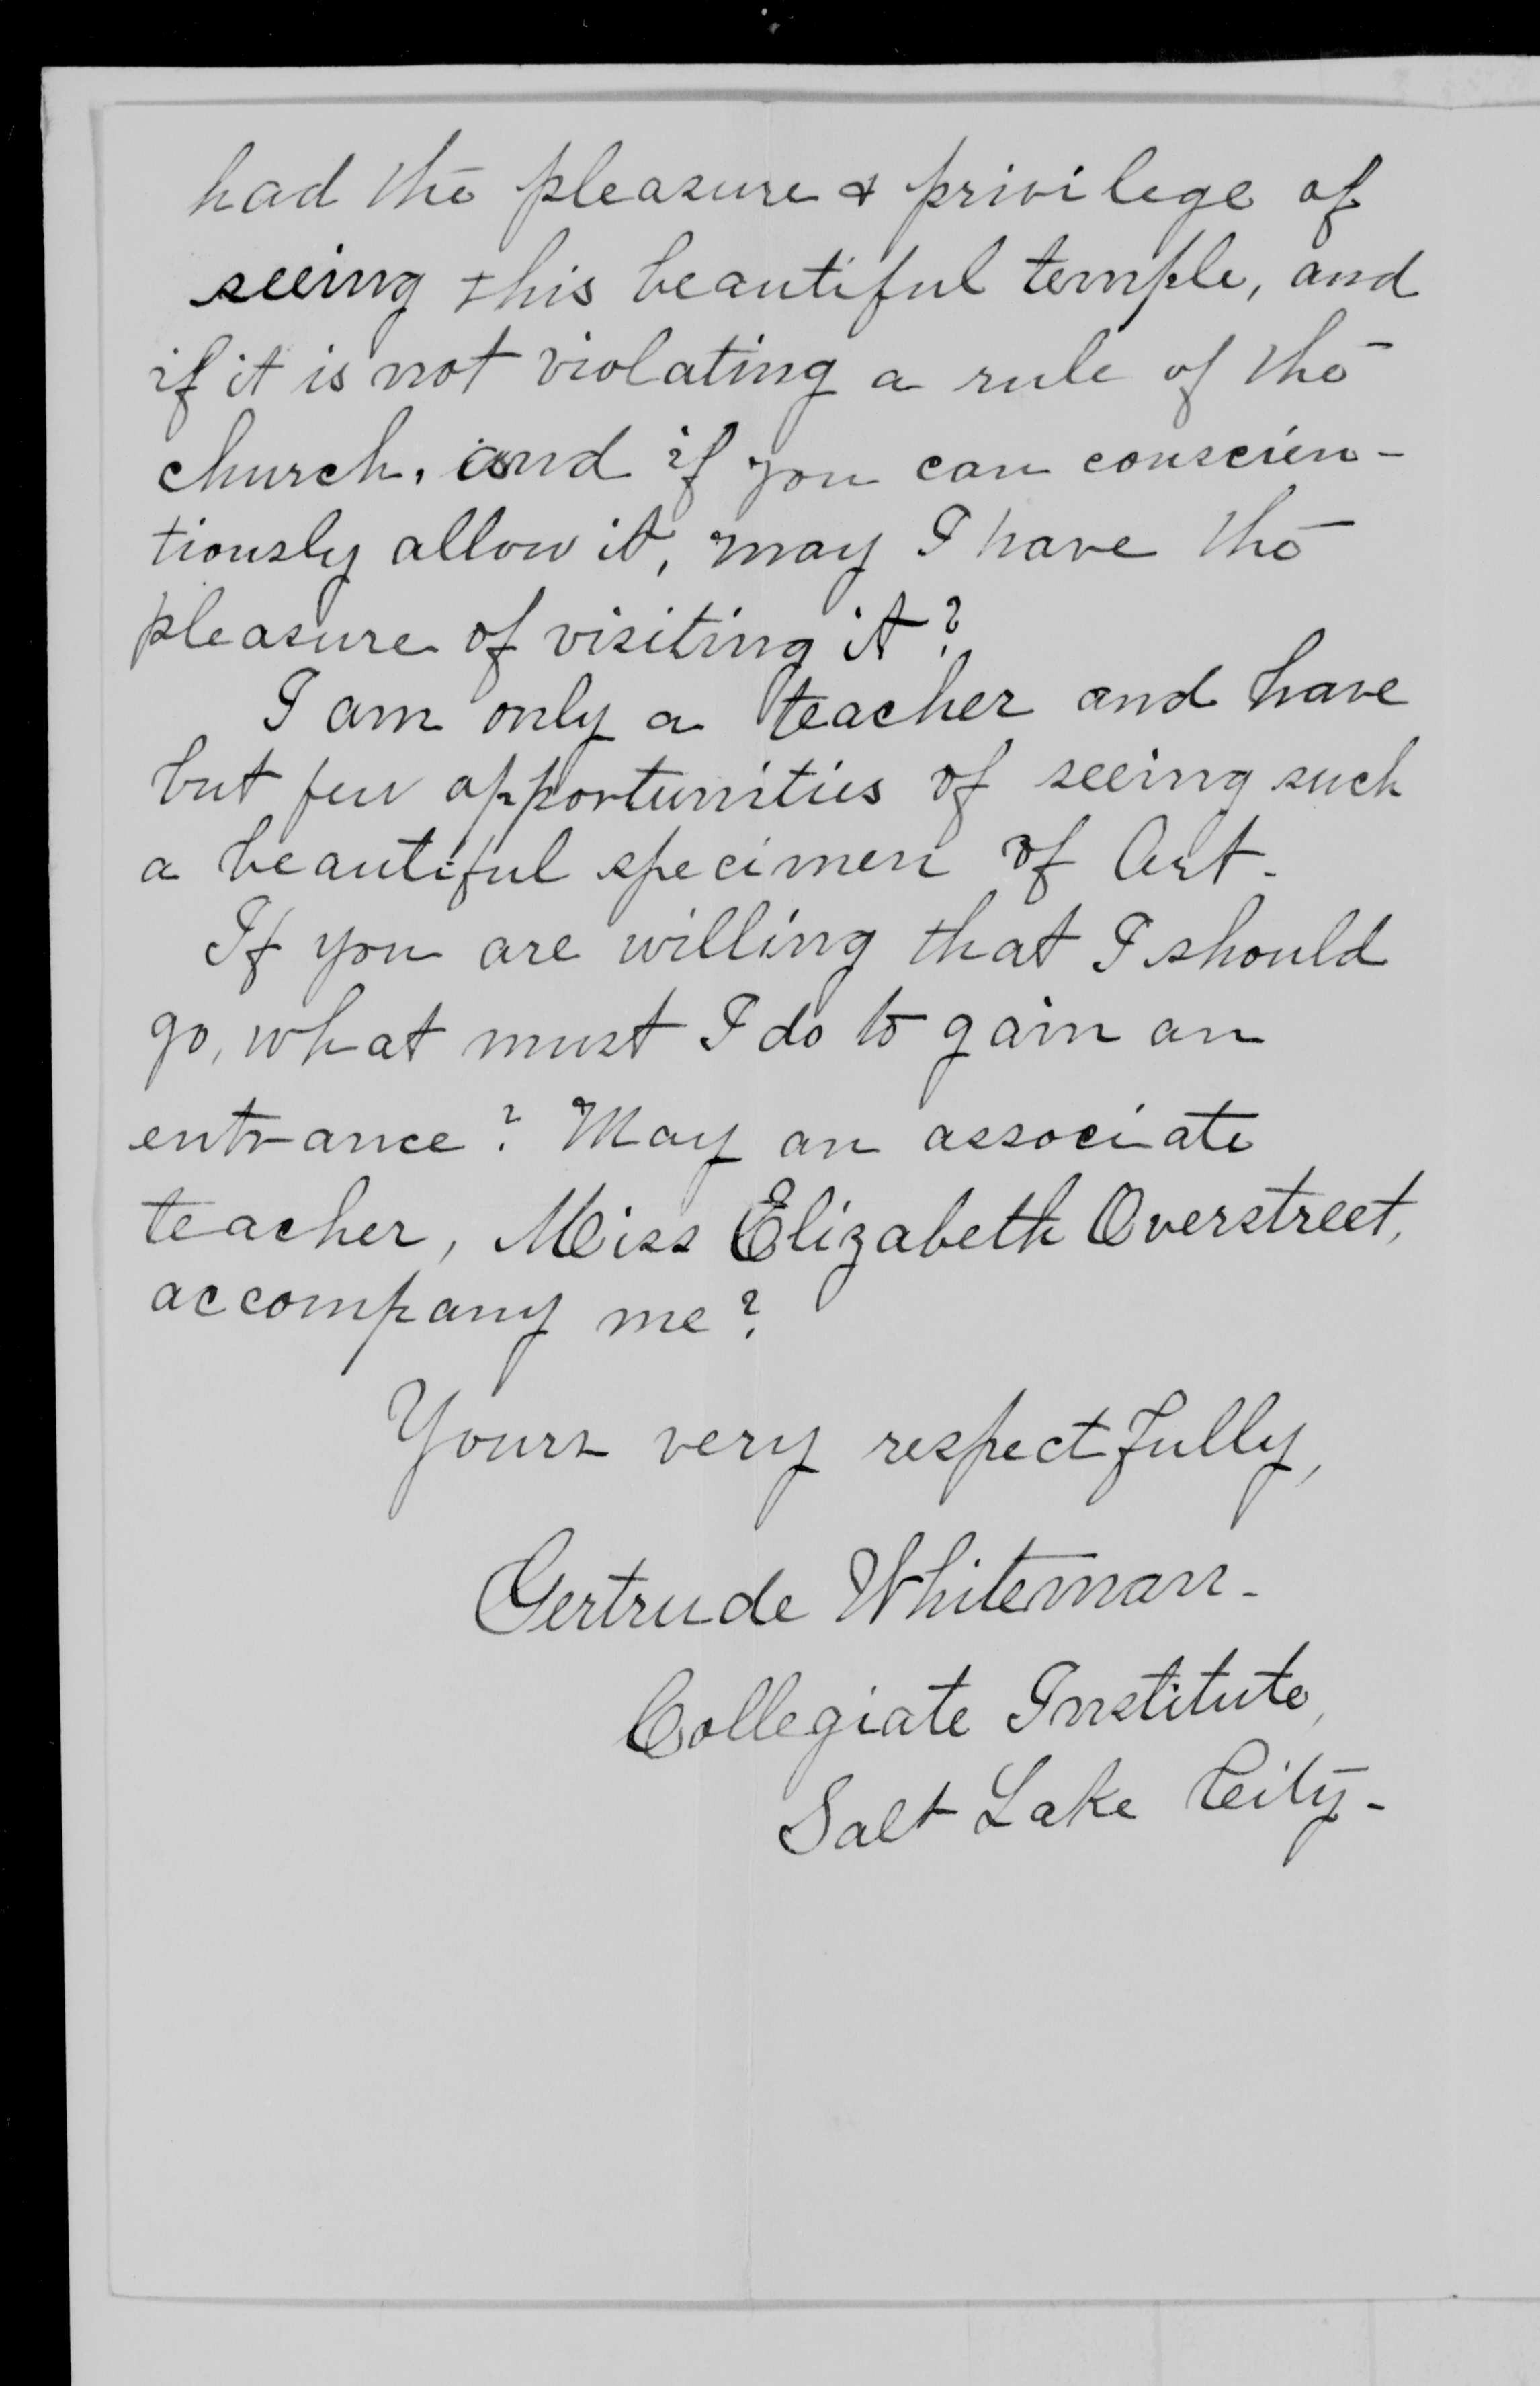 had the pleasure & privilege of
seeing this beautiful temple, and
if it is not violating a rule of the
church, and if you can conscien-
tiously allow it, may I have the
pleasure of visiting it?
I am only a teacher and have
but few opportunities of seeing such
a beautiful specimen of Art-
If you are willing that I should
go, what must I do to gain an
entrance? May an associate
teacher, Miss Elizabeth Overstreet,
accompany me?
Yours very respectfully,
Gertrude Whiteman-
Collegiate Institute,
Salt Lake City-